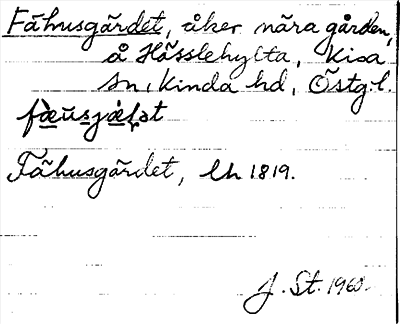 Fähusgärdet, åker nära gården,
å Hässlehylta, Kisa
sn, Kinda hd, Östg. l.
fæ̀u̇sjæ̀ḷət
Fähusgärdet, lh 1819.
J. St. 1960.